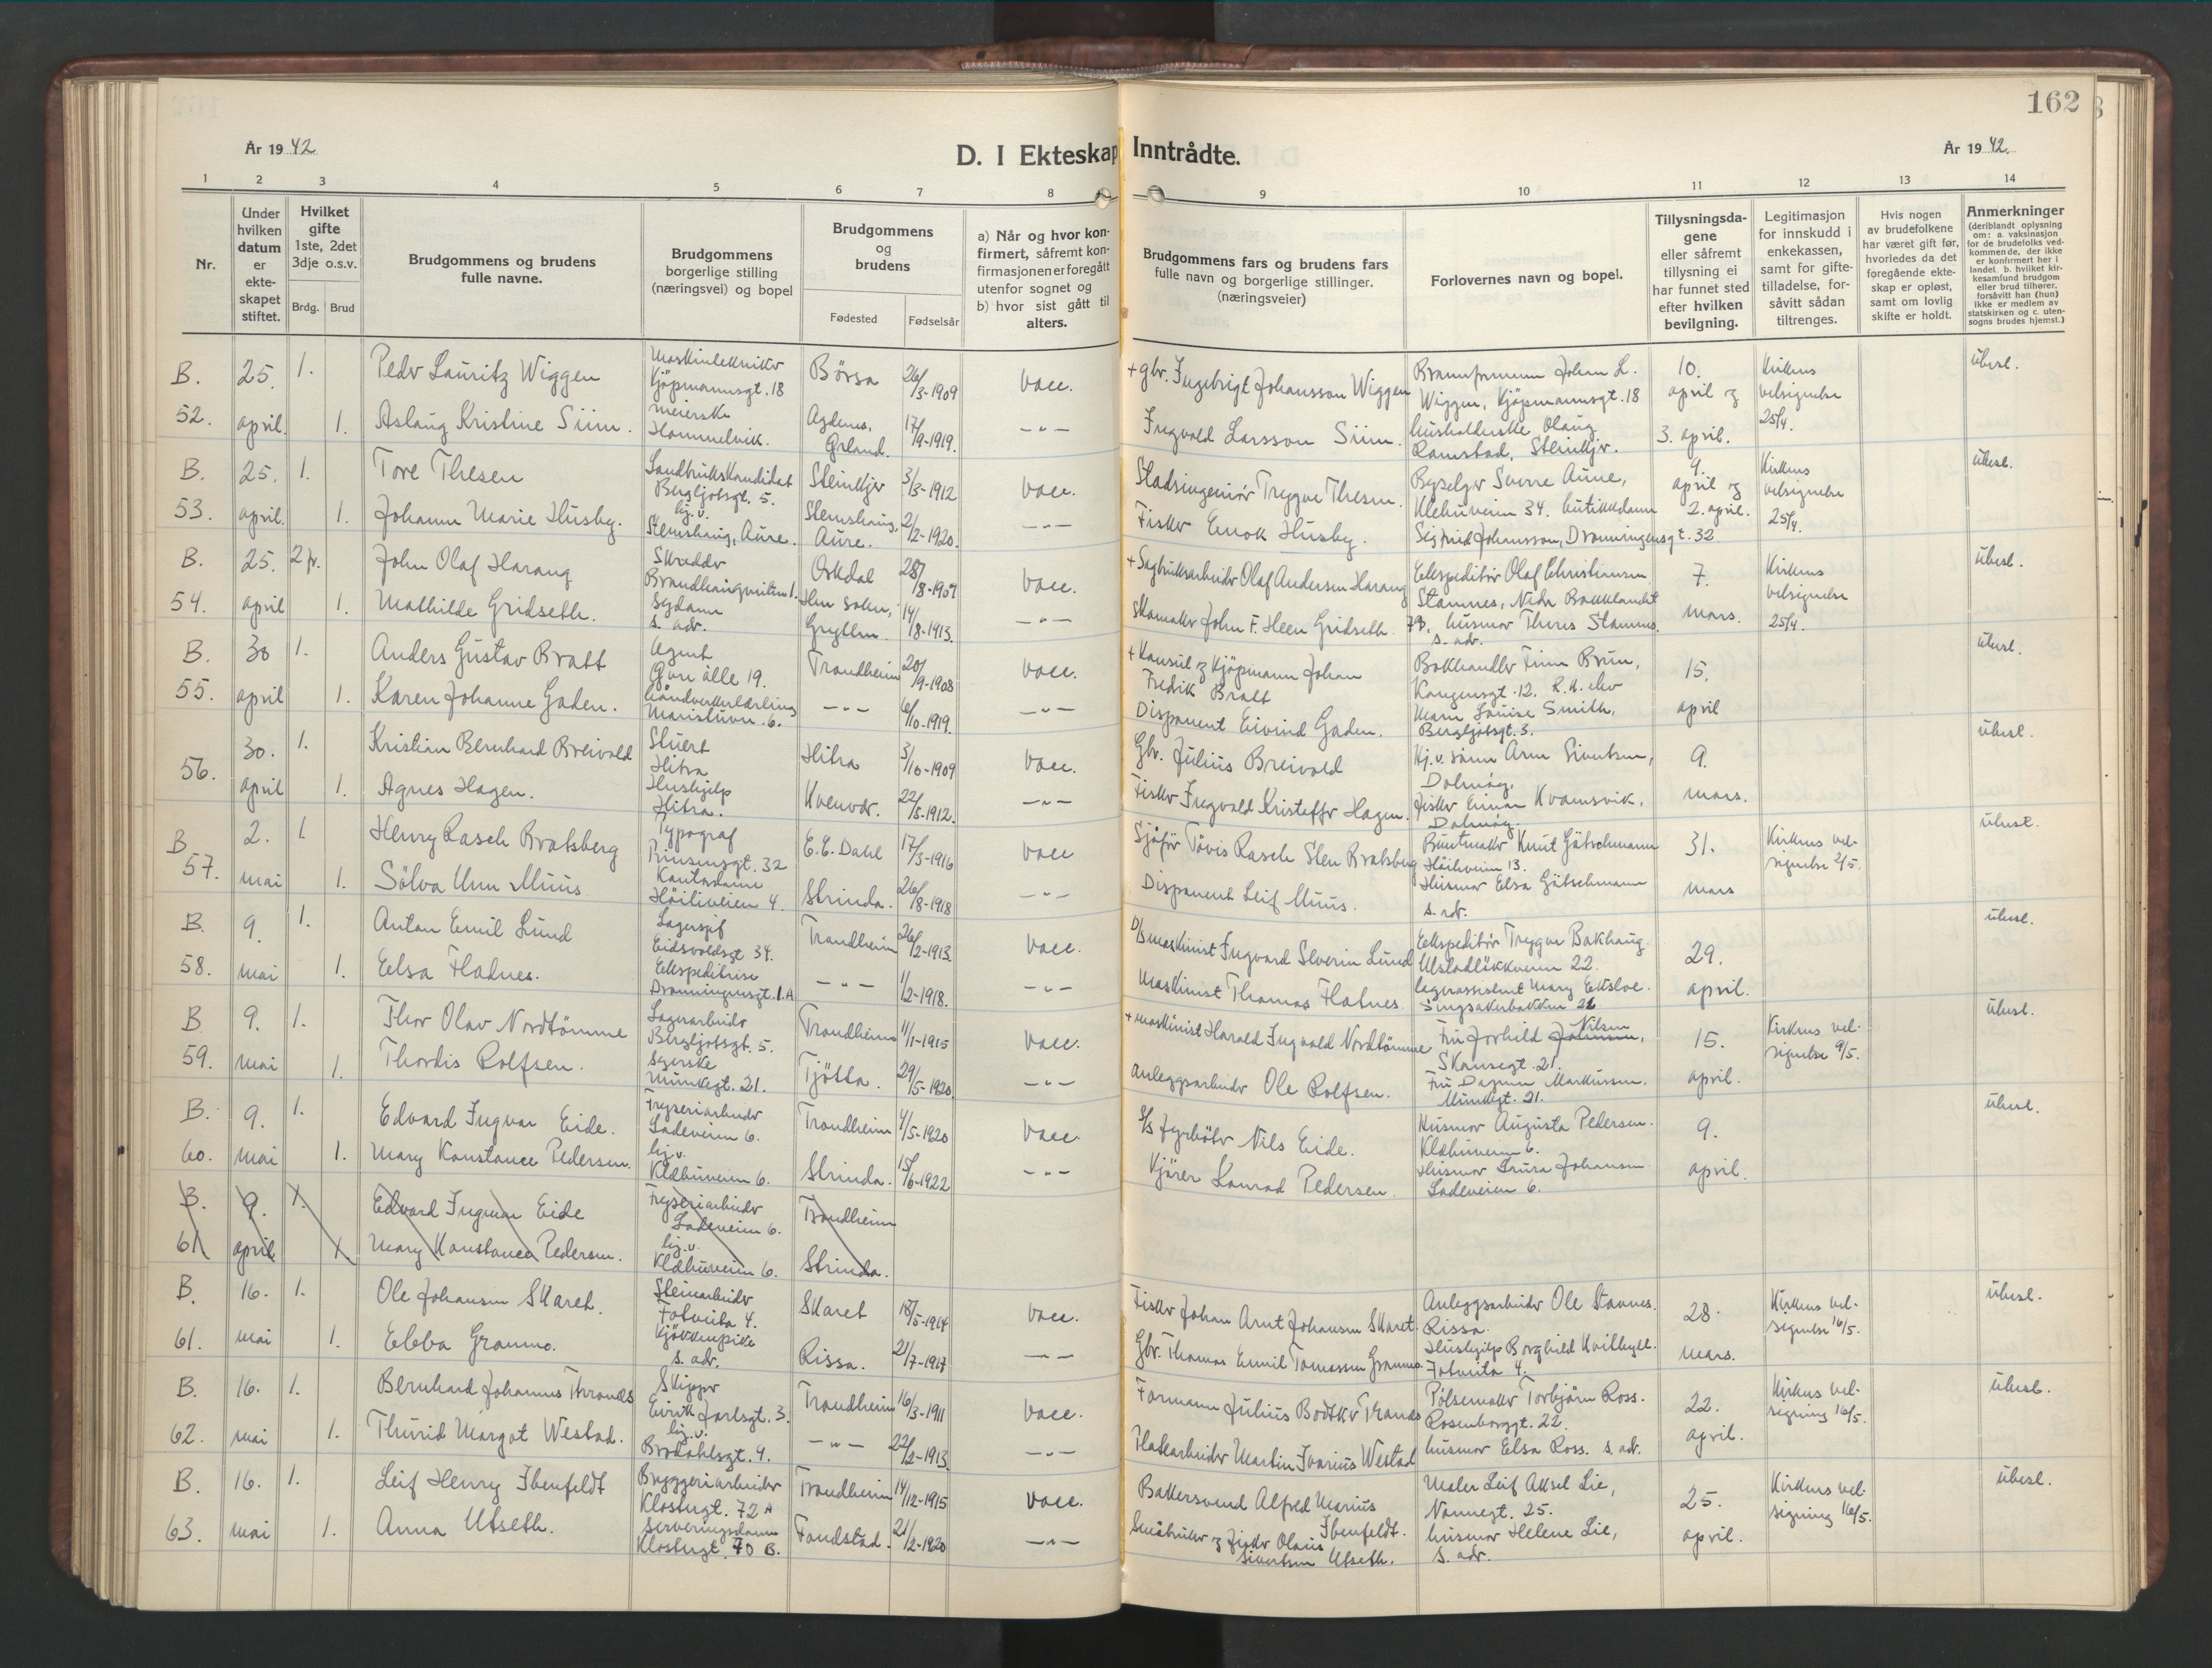 162
År 1942
D. I Ekteskap Inntrådte.
År 1942.
1 2 3 4 5 6 7 8 9 10 11 12 13 14
Nr.
Under hvilken datum er ekteskapet stiftet.
Hvilket gifte 1ste, 2det 3dje o.s.v.
Brdg. Brud
Brudgommens og brudens fulle navne.
Brudgommens borgerlige stilling (næringsvei) og bopel
Brudgommens og brudens
Fødested Fødselsår
a) Når og hvor konfirmert, såfremt konfirmasjonen er foregått utenfor sognet og b) hvor sist gått til alters.
Brudgommens fars og brudens fars fulle navn og borgerlige stillinger. (næringsveier)
Forlovernes navn og bopel.
Tillysningsdagene eller såfremt tillysning ei har funnet sted efter hvilken bevilgning.
Legitimasjon for innskudd i enkekassen, samt for giftetilladelse, forsåvitt sådan tiltrenges.
Hvis nogen av brudefolkene har været gift før, hvorledes da det foregående ekteskap er opløst, samt om lovlig skifte er holdt.
Anmerkninger (deriblandt oplysning om: a. vaksinasjon for de brudefolks vedkommende, der ikke er konfirmert her i landet. b. hvilket kirkesamfund brudgom eller brud tilhører, forsåvitt han (hun) ikke er medlem av statskirken og c. utensogns brudes hjemst.)
B. 52. 25. april. 1. Peder Lauritz Wiggen Maskintekniker Kjøpmannsgt. 18 Børsa 26/3-1909 vacc. + gbr. Ingebrigt Johansson Wiggen Johan L. Wiggen, Kjøpmannsgt. 18 10. april og Kirkens velsignelse 25/4. ubesl.
1. Aslaug Kristine Siim. meierske Hommelvik. Agdenes, 17/9-1919. -"- Ingvald Larsson Siim. husholderske Olaug Ramstad, Steinkjer. 3. april.
B. 53. 25. april. 1. Tore Thesen Landbrukskandidat Bergljotsgt. 5. Steinkjer 3/3-1912 vacc. Stadsingeniør Trygve Thesen. Byselger Sverre Aune, Klæbuveien 34. 9. april og Kirkens velsignelse 25/4. ubesl.
1. Johanna Marie Husby. lig.v. Stemshaug, Aure. Stemshaug, Aure. 2/2-1920. -"- Fisker Enok Husby. butikkdame Sigfrid Johansson, Dronningensgt. 32 2. april.
B. 54. 25. april 2 fr. John Olaf Harang Skredder Orkdal 28/8-1907 vacc. + Sagbruksarbeider Olaf Andersen Harang Ekspeditør Olaf Christiansen Stamnes, Nedre Bakklandet 7. mars. Kirkens velsignelse 25/4. ubesl.
1. Mathilde Gridseth. sydame s. adr. Hen sokn, Grytten. 14/8-1913. -"- Skomaker John F. Heen Gridseth husmor Theres Stamnes. s. adr.
B. 55. 30 april 1. Anders Gustav Bratt Agent Gyri alle 19. Trondheim 20/9-1908 vacc. + Konsul og kjøpmann Johan Fredik Bratt Bokhandler Finn Brun, Kongensgt. 12. 15. april ubesl.
1. Karen Johanne Gaden. Håndverkerlærling 6. -"- 6/10-1919. -"- Disponent Eivind Gaden. Louise Smith, Bergljotsgt. 3.
56. 30. april 1. Kristian Bernhard Breivold Stuert Hitra Hitra 3/10-1909 vacc. Gbr. Julius Breivold Arne Sivertsen, Dolmøy. 9. mars. ubesl.
1. Agnes Hagen. Hushjelp Hitra. Kvenvær. 22/5-1912. -"- Fisker Ingvald Kristoffer Hagen. fisker Einar Kvamsvik, Dolmøy.
B 57. 2. mai 1. Henry Rasch Bratsberg Typograf Prinsensgt. 32 E.C. Dahl 17/3-1916 vacc Sjåfør Tøvis Rasch Sten Bratsberg Buntmaker Knut Götschmann Höiliveien 13. 31. mars Kirkens velsignelse 2/5. ubesl.
1. Sölva Unn Muus Kontordame Höiliveien 4. Strinda. 26/8-1918 -"- Disponent Leif Muus. Husmor Elsa Götschmann s. adr.
B. 58. 9. mai 1. Anton Emil Lund Lagersjef Eidsvoldsgt 34. Trondheim 26/2-1913. vacc. D/S maskinist Ingvard Severin Lund Ekspeditør Trygve Bakhaug. Ulstadløkkveien 22. 29. april. ubesl.
1. Elsa Flatnes. Ekspeditrise Dronningensgt. 1. A -"- 1/2-1918. -"- Maskinist Thomas Flatnes. lagerassistent Mary Eksloe. Singsakerbakken 26
B 59. 9. mai 1. Thor Olav Nordtømme Lagerarbeider Bergljotsgt. 5. Trondheim 11/1-1915 vacc. + Maskinist Harald Ingvald Nordtømme Fru Jorhild Nilsen, Skansegt. 21. 15. april. Kirkens velsignelse 9/5. ubesl.
1. Thordis Rolfsen. Syerske Munkegt. 21. Tjøtta. 29/5-1920. -"- Anleggsarbeider Ole Rolfsen. Fru Dagmar Markussen. Munkegt. 21.
B. 60. 9. mai 1. Edvard Ingvar Eide. Fryseriarbeider Ladeveien 6. Trondheim 4/5-1920 vacc. S/S fyrbøter Nils Eide. Husmor Augusta Pedersen. Klæbuveien 6. 9. april. ubesl.
1. Mary Konstance Pedersen. lig.v. Klæbuveien 6. Strinda. 15/6-1922 -"- Kjører Konrad Pedersen. Husmor Laura Johansen Ladeveien 6.
B. 61 9. april 1. Edvard Ingvar Eide Fryseriarbeider Ladeveien 6. Trondheim
1 Mary Konstance Pedersen. lig.v. Klæbuveien 6. Strinda.
B. 61. 16. mai 1. Ole Johansen Skaret. Steinarbeider Fotveita 4. Skaret 18/5-1914 vacc. Fisker Johan Arnt Johansen Skaret. Anleggsarbeider Ole Stavnes. Rissa. 28. mars. Kirkens velsignelse 16/5. ubesl.
1. Ebba Granmo. Kjøkkenpike s. adr. Rissa. 21/7-1917 -"- Gbr. Thomas Emil Tomassen Granmo. Hushjelp Borghild Kvithyll. Fotveita 4.
B. 62. 16. mai 1. Bernhard Johannes Tranaas Skipper Eirik Jarlsgt. 3. Trondheim 16/3-1911 vacc. Formann Julius Bødtker Tranaas Pølsemaker Torbjørn Ross. Rosenborggt. 22. 22. april. Kirkens velsigning 16/5. ubesl.
1. Thurid Margot Westad. lig.v. Brødahlsgt. 9. -"- 22/2-1913. -"- Platearbeider Martin Ivarius Westad husmor Elsa Ross. s. adr.
B. 63. 16. mai 1. Leif Henry Ibenfeldt Bryggeriarbeider Klostergt. 72 A Trondheim 14/12-1915 vacc. Bakersvend Alfred Marius Ibenfeldt. Maler Leif Aksel Lie, Nonnegt. 25. 25. april. Kirkens velsigning 16/5. ubesl.
1. Anna Utseth. Serveringsdame Klostergt. 70 B. Fondstad. 21/2-1920 -"- Småbruker og fisker Olaus Sivertsen Utseth. husmor Helene Lie, s. adr.